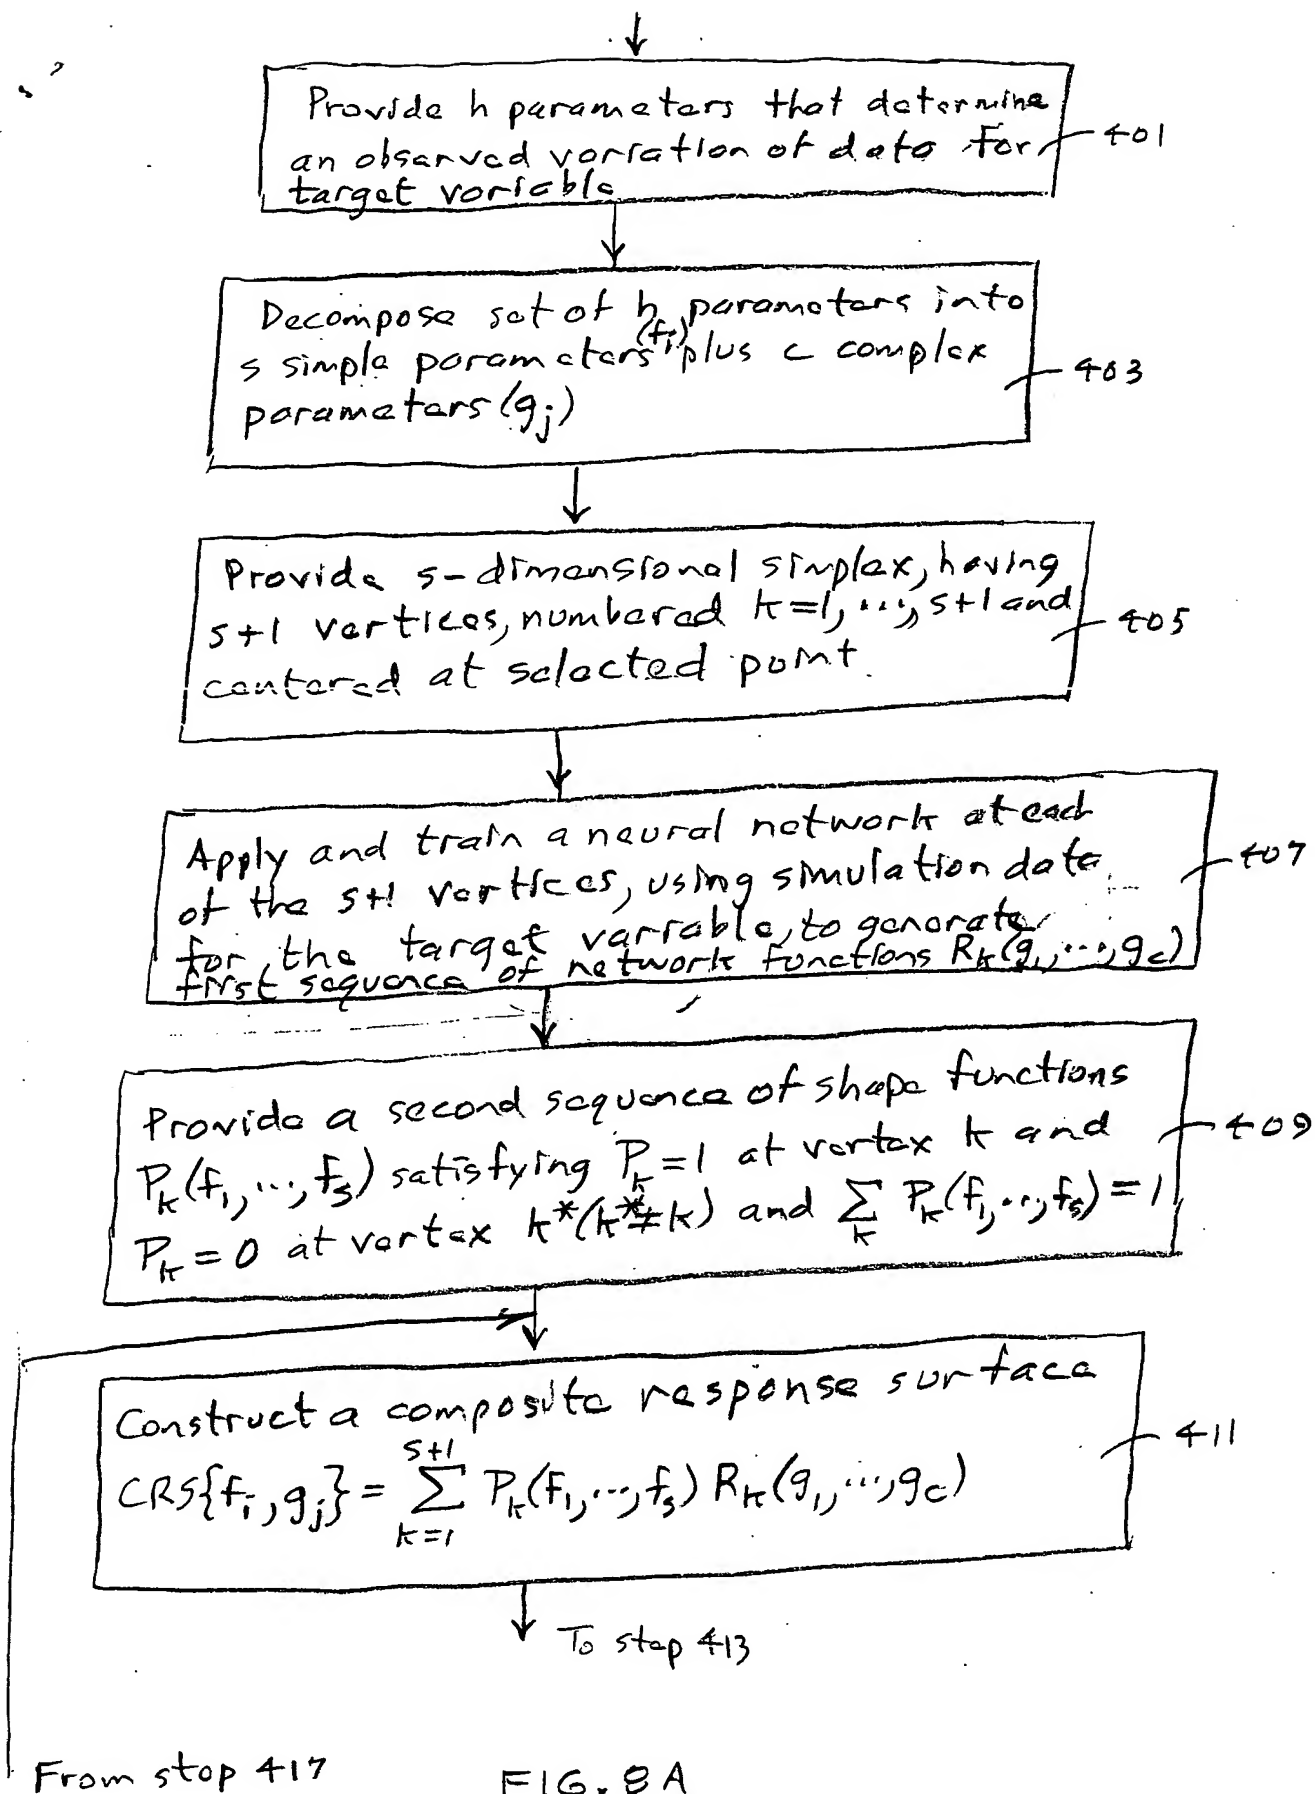 Provide h parameters that determine
an observed variation of data for
target variable
401
Decompose set of h parameters into
s simple parameters (fi) plus c complex
parameters (gj)
403
Provide s-dimensional simplex, having
s+1 vertices, numbered k=1, ..., s+1 and
centered at selected point.
405
Apply and train a neural network at each
of the s+1 vertices, using simulation data
for the target variable, to generate
first sequence of network functions Rk(g1, ..., gc)
407
Provide a second sequence of shape functions
Pk(f1, ..., fs) satisfying Pk=1 at vertex k and
Pk=0 at vertex k*(k*≠k) and ∑k Pk(f1, .., fs)=1
409
Construct a composite response surface
CRS{fi, gj} = ∑k=1s+1 Pk(f1, ..., fs) Rk(g1, ..., gc)
411
To step 413
From step 417
FIG. 8A